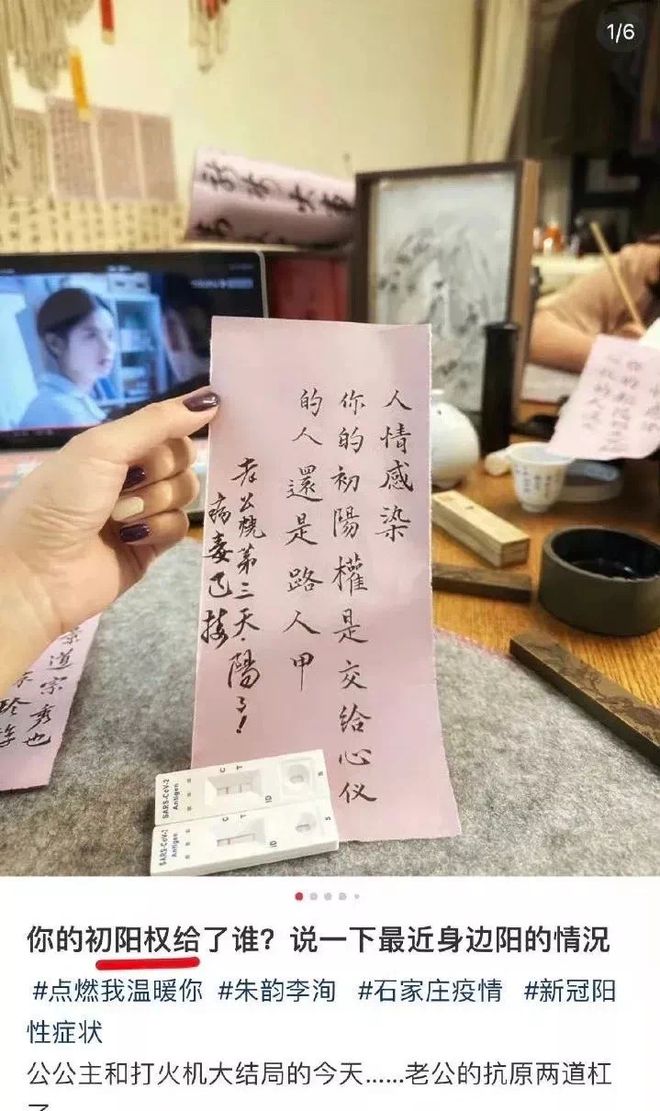 1/6
人情感染
你的初陽權是交給心仪
的人還是路人甲
老公烧第三天.陽了!
病毒已接
SARS-CoV-2
Antigen
C T
ID
S
SARS-CoV-2
Antigen
C T
ID
S
你的初阳权给了谁？说一下最近身边阳的情况
#点燃我温暖你 #朱韵李洵 #石家庄疫情 #新冠阳
性症状
公公主和打火机大结局的今天......老公的抗原两道杠